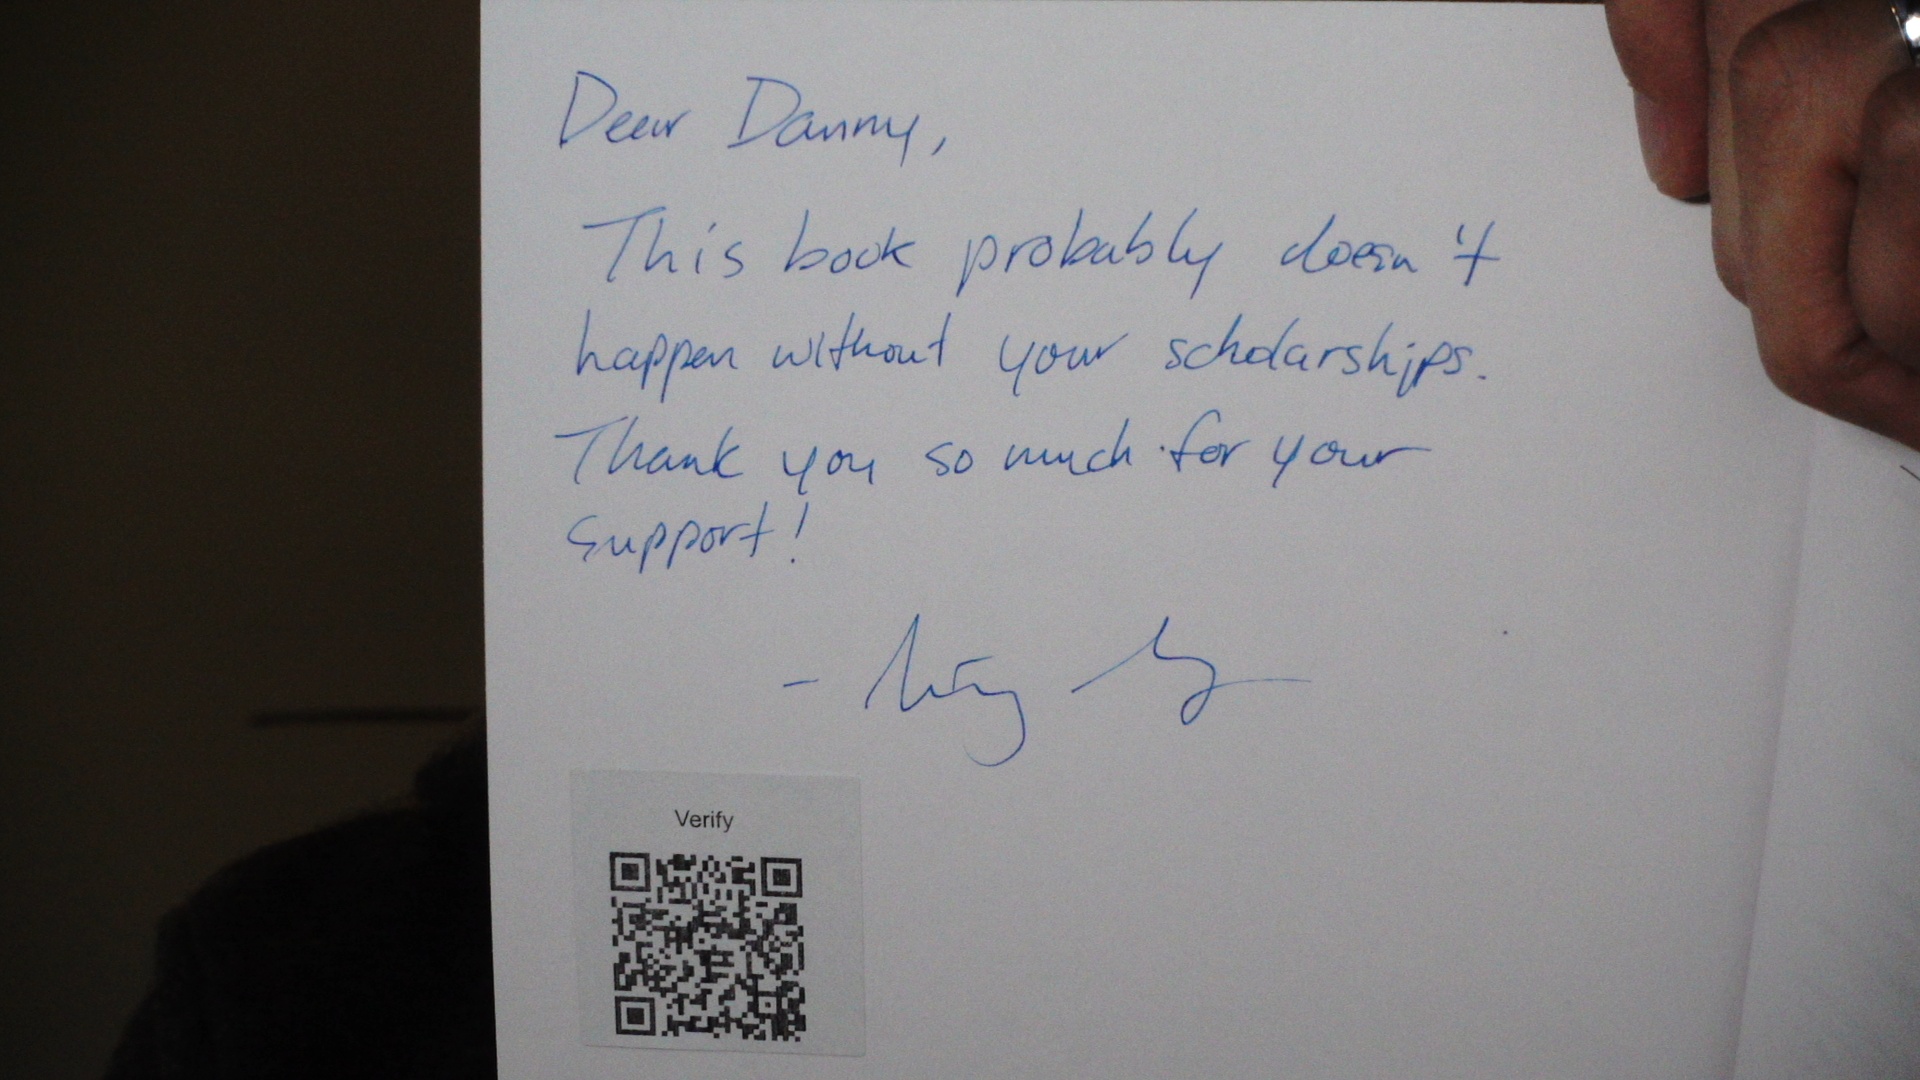 Dear Danny,
This book probably doesn't
happen without your scholarships.
Thank you so much for your
support!
Verify